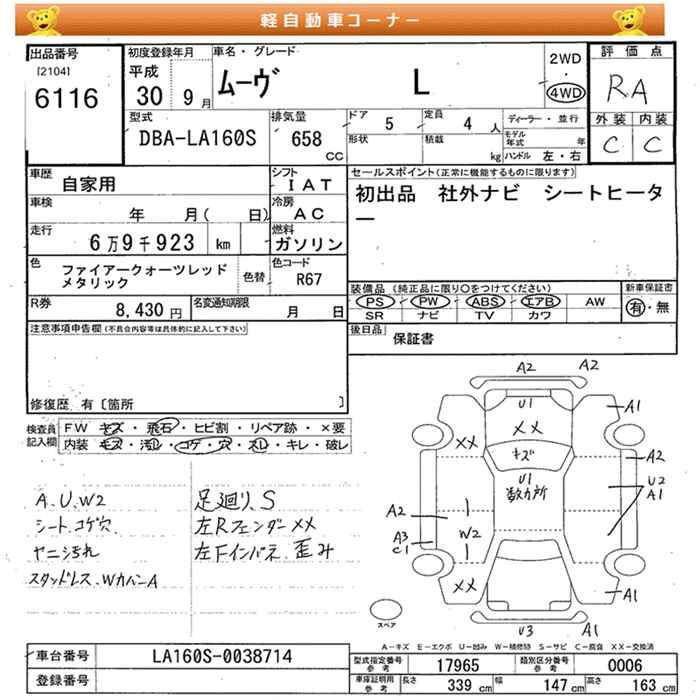 軽自動車コーナー
出品番号
[2104]
6116
初度登録年月
平成
30 9月
車名・グレード
ムーヴ L
2WD
・
4WD
評価点
RA
外装 内装
C C
型式
DBA-LA160S
排気量
658
CC
ドア 5
定員 4 人
形状
積載 kg
ディーラー・並行
モデル年式 年
ハンドル 左・右
車歴
自家用
シフト
IAT
車検
年 月( 日)
冷房
AC
走行
6万9千923 km
燃料
ガソリン
色
ファイアークォーツレッド
メタリック
色替
色コード
R67
R券
8,430 円
名変通知期限
月 日
セールスポイント(正常に機能するものに限ります)
初出品 社外ナビ シートヒータ
ー
装備品(純正品に限り○をつけてください)
PS PW ABS エアB AW
SR ナビ TV カワ
新車保証書
有・無
後日品
保証書
注意事項申告欄(不具合内容等は具体的に記入して下さい)
修復歴 有〔箇所 〕
検査員
記入欄
FW キズ・飛石・ヒビ割・リペア跡・×要
内装 キズ・汚レ・コゲ・穴・スレ・キレ・破レ
A.U.W2
シート.コゲ穴
ヤニ汚れ
スタッドレス.WカバーA
足廻り.S
左Rフェンダー××
左Fインパネ.歪み
A2 A2
U1
××
キズ
U1
数カ所
××
A1
A2
U2
A1
A2
A3
C1
W2
××
A1
U3 A1
スペア
A-キズ E-エクボ U-凹み W-補修跡 S-サビ C-腐食 XX-交換済
車台番号
LA160S-0038714
登録番号
型式指定番号
参考
17965
類別区分番号
参考
0006
車庫証明用
参考
長さ 339 cm 幅 147 cm 高さ 163 cm